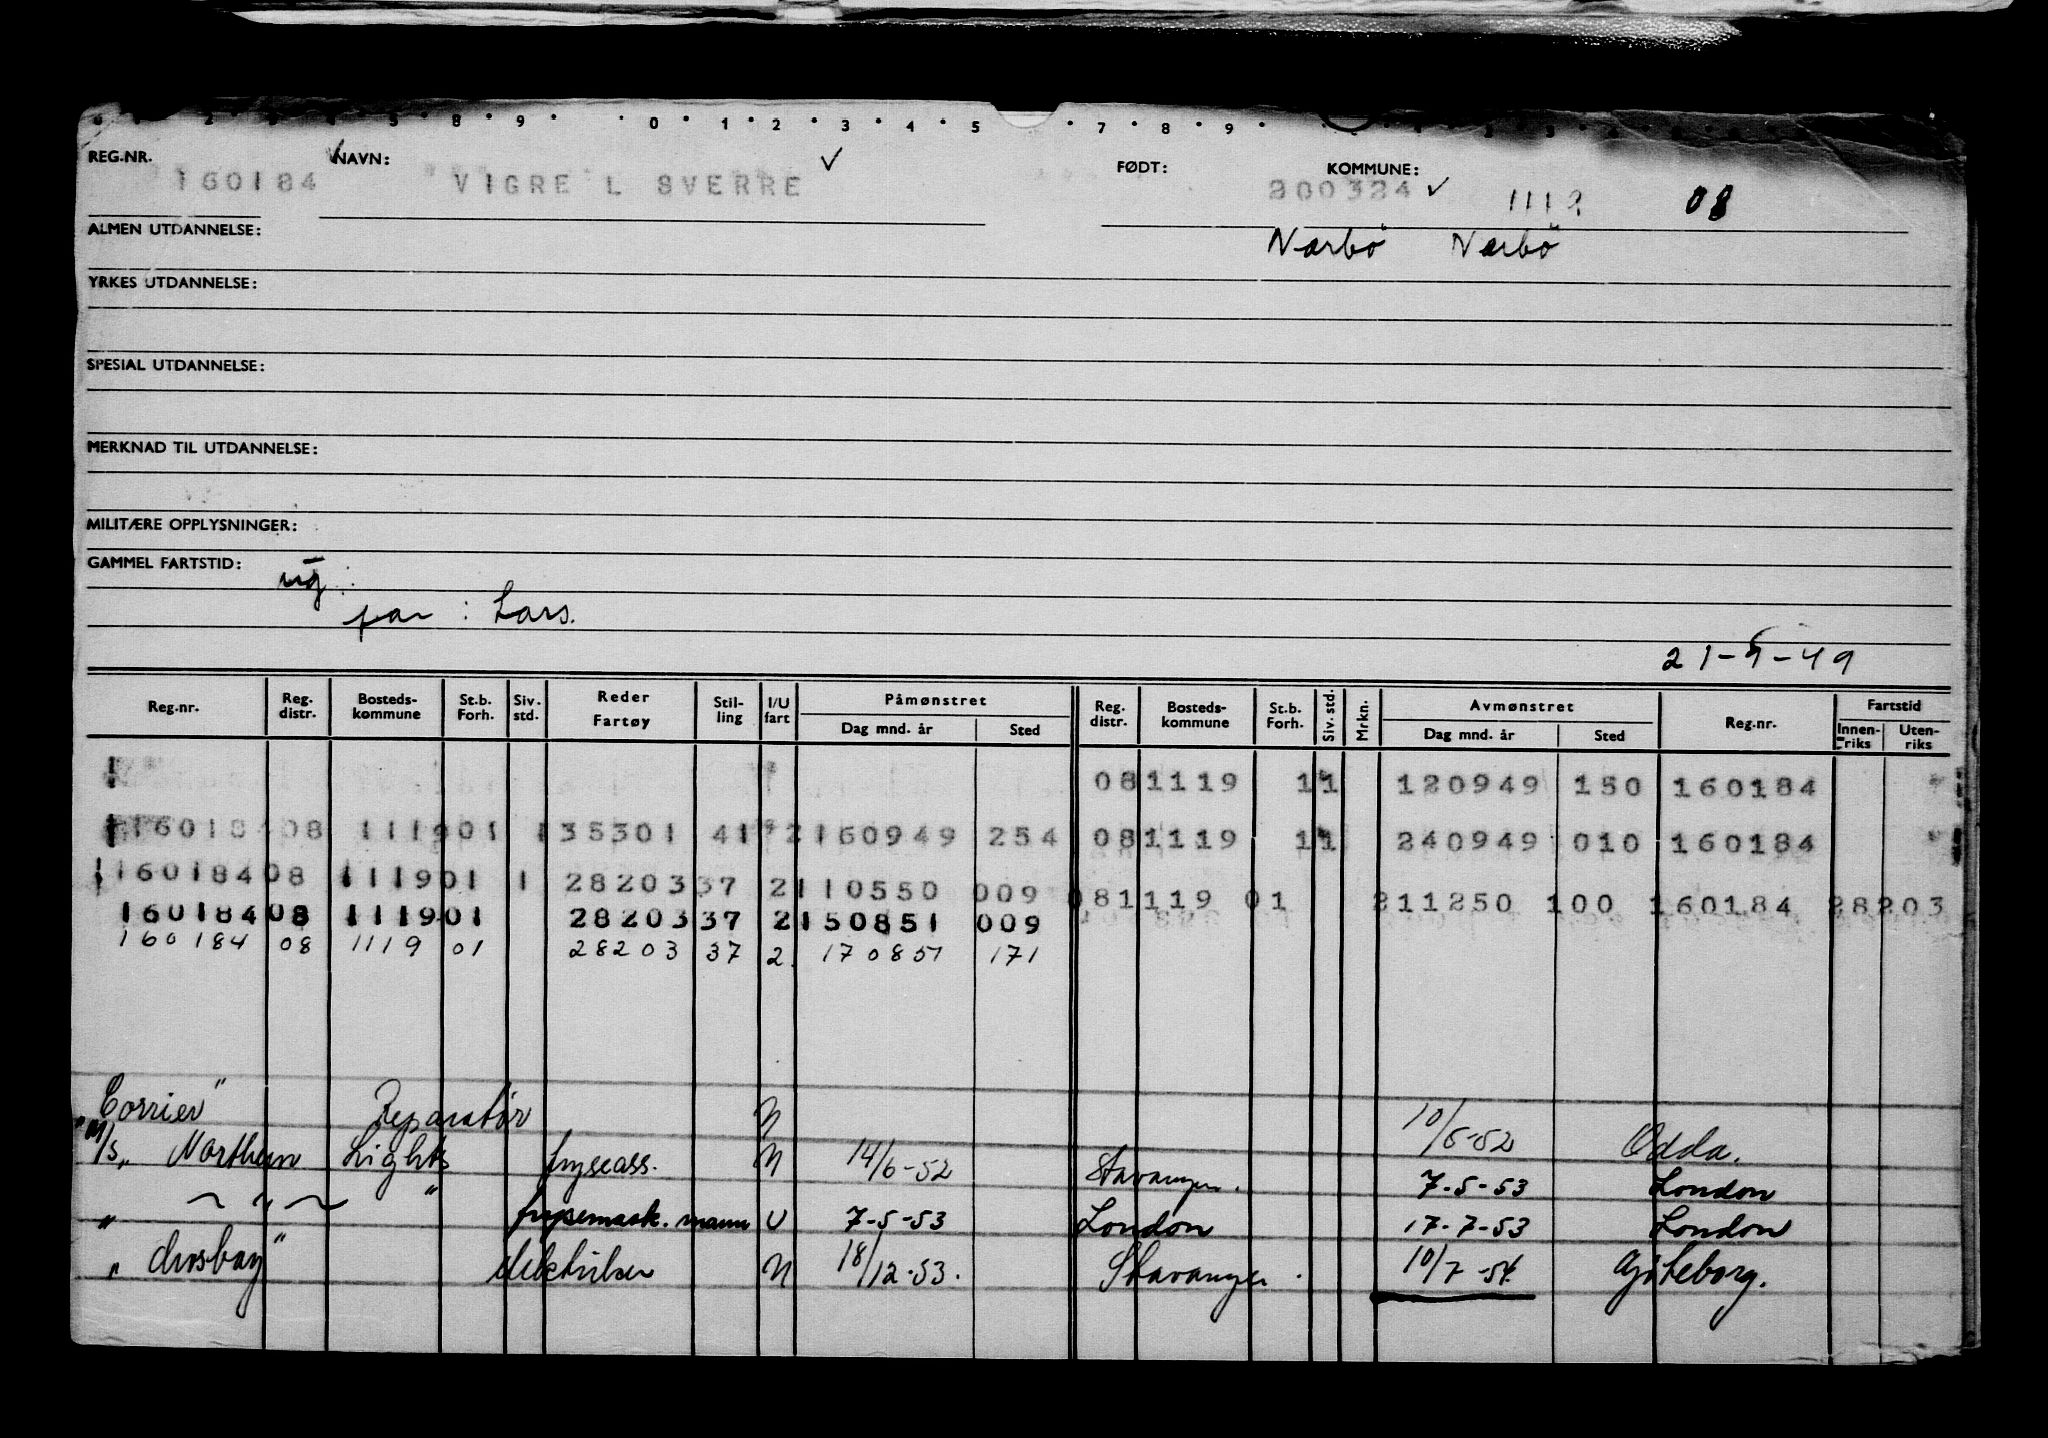 REG.NR. NAVN: FØDT: KOMMUNE:
160184 VIGRE L SVERRE 200324 08
ALMEN UTDANNELSE: Nærbø Nærbø
YRKES UTDANNELSE:
SPESIAL UTDANNELSE:
MERKNAD TIL UTDANNELSE:
MILITÆRE OPPLYSNINGER:
GAMMEL FARTSTID:
far : Lars.
21-9-49
Reg.nr. Reg. distr. Bosteds- kommune St.b. Forh. Siv. std. Reder Fartøy Stil- ling I/U fart Påmønstret Dag mnd. år Sted Reg. distr. Bosteds- kommune St.b. Forh. Siv. std. Mrkn. Avmønstret Dag mnd. år Sted Reg.nr. Fartstid Innen- riks Uten- riks
08 1119 1 1 120949 150 160184
160184 08 1119 01 1 35301 41 2 160949 254 08 1119 1 1 240949 010 160184
160184 08 1119 01 1 28203 37 2 110550 009 08 1119 01 211250 100 160184 28203
160184 08 1119 01 28203 37 2 150851 009
160184 08 1119 01 28203 37 2 170851 171
"Corrier" Reparatør N 10/5-52 Odda.
M/S "Northern Lights" fryseass. N 14/6-52 Stavanger. 7-5-53 London
" — " — " frysemask. mann U 7-5-53 London 17-7-53 London
" Elektriker N 18/12-53. Stavanger. 10/7-54 Göteborg.